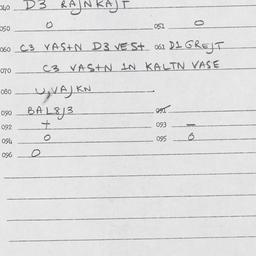 040 D3 RAJNKAJT
050 O 051 O
060 C3 VAS+N D3 VES+ 061 D1 GREJT
070 C3 VAS+N IN KALTN VASE
080 VAJKN
090 BAL8J3 091
092 + 093 —
094 O 095 O
096 O